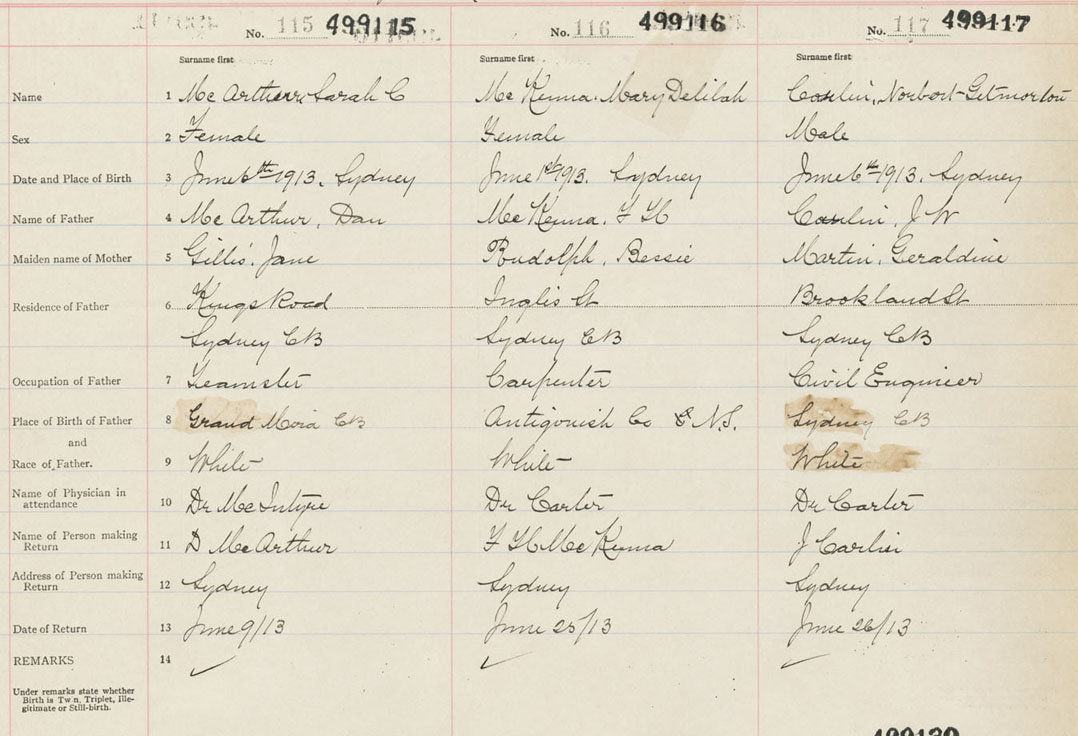 No. 115 499115 No. 116 499116 No. 117 499117
Surname first Surname first Surname first
Name 1 Mc Arthur, Sarah C Mc Kenna, Mary Delilah
Sex 2 Female Female Male
Date and Place of Birth 3 June 6th 1913, Sydney June 1st 1913. Sydney June 6th 1913, Sydney
Name of Father 4 Mc Arthur, Dan Mc Kenna, F H J W
Maiden name of Mother 5 Gillis, Jane Rudolph, Bessie Martin, Geraldine
Residence of Father 6 Kings Road Inglis St Brookland St
Sydney CB Sydney CB Sydney CB
Occupation of Father 7 Teamster Carpenter Civil Engineer
Place of Birth of Father 8 Grand Mira CB Antigonish Co N.S. Sydney CB
and
Race of Father. 9 White White White
Name of Physician in
attendance 10 Dr McIntyre Dr Carter Dr Carter
Name of Person making
Return 11 D McArthur F H McKenna J
Address of Person making
Return 12 Sydney Sydney Sydney
Date of Return 13 June 9/13 June 25/13 June 26/13
REMARKS 14 ✓ ✓ ✓
Under remarks state whether
Birth is Twin, Triplet, Ille-
gitimate or Still-birth.